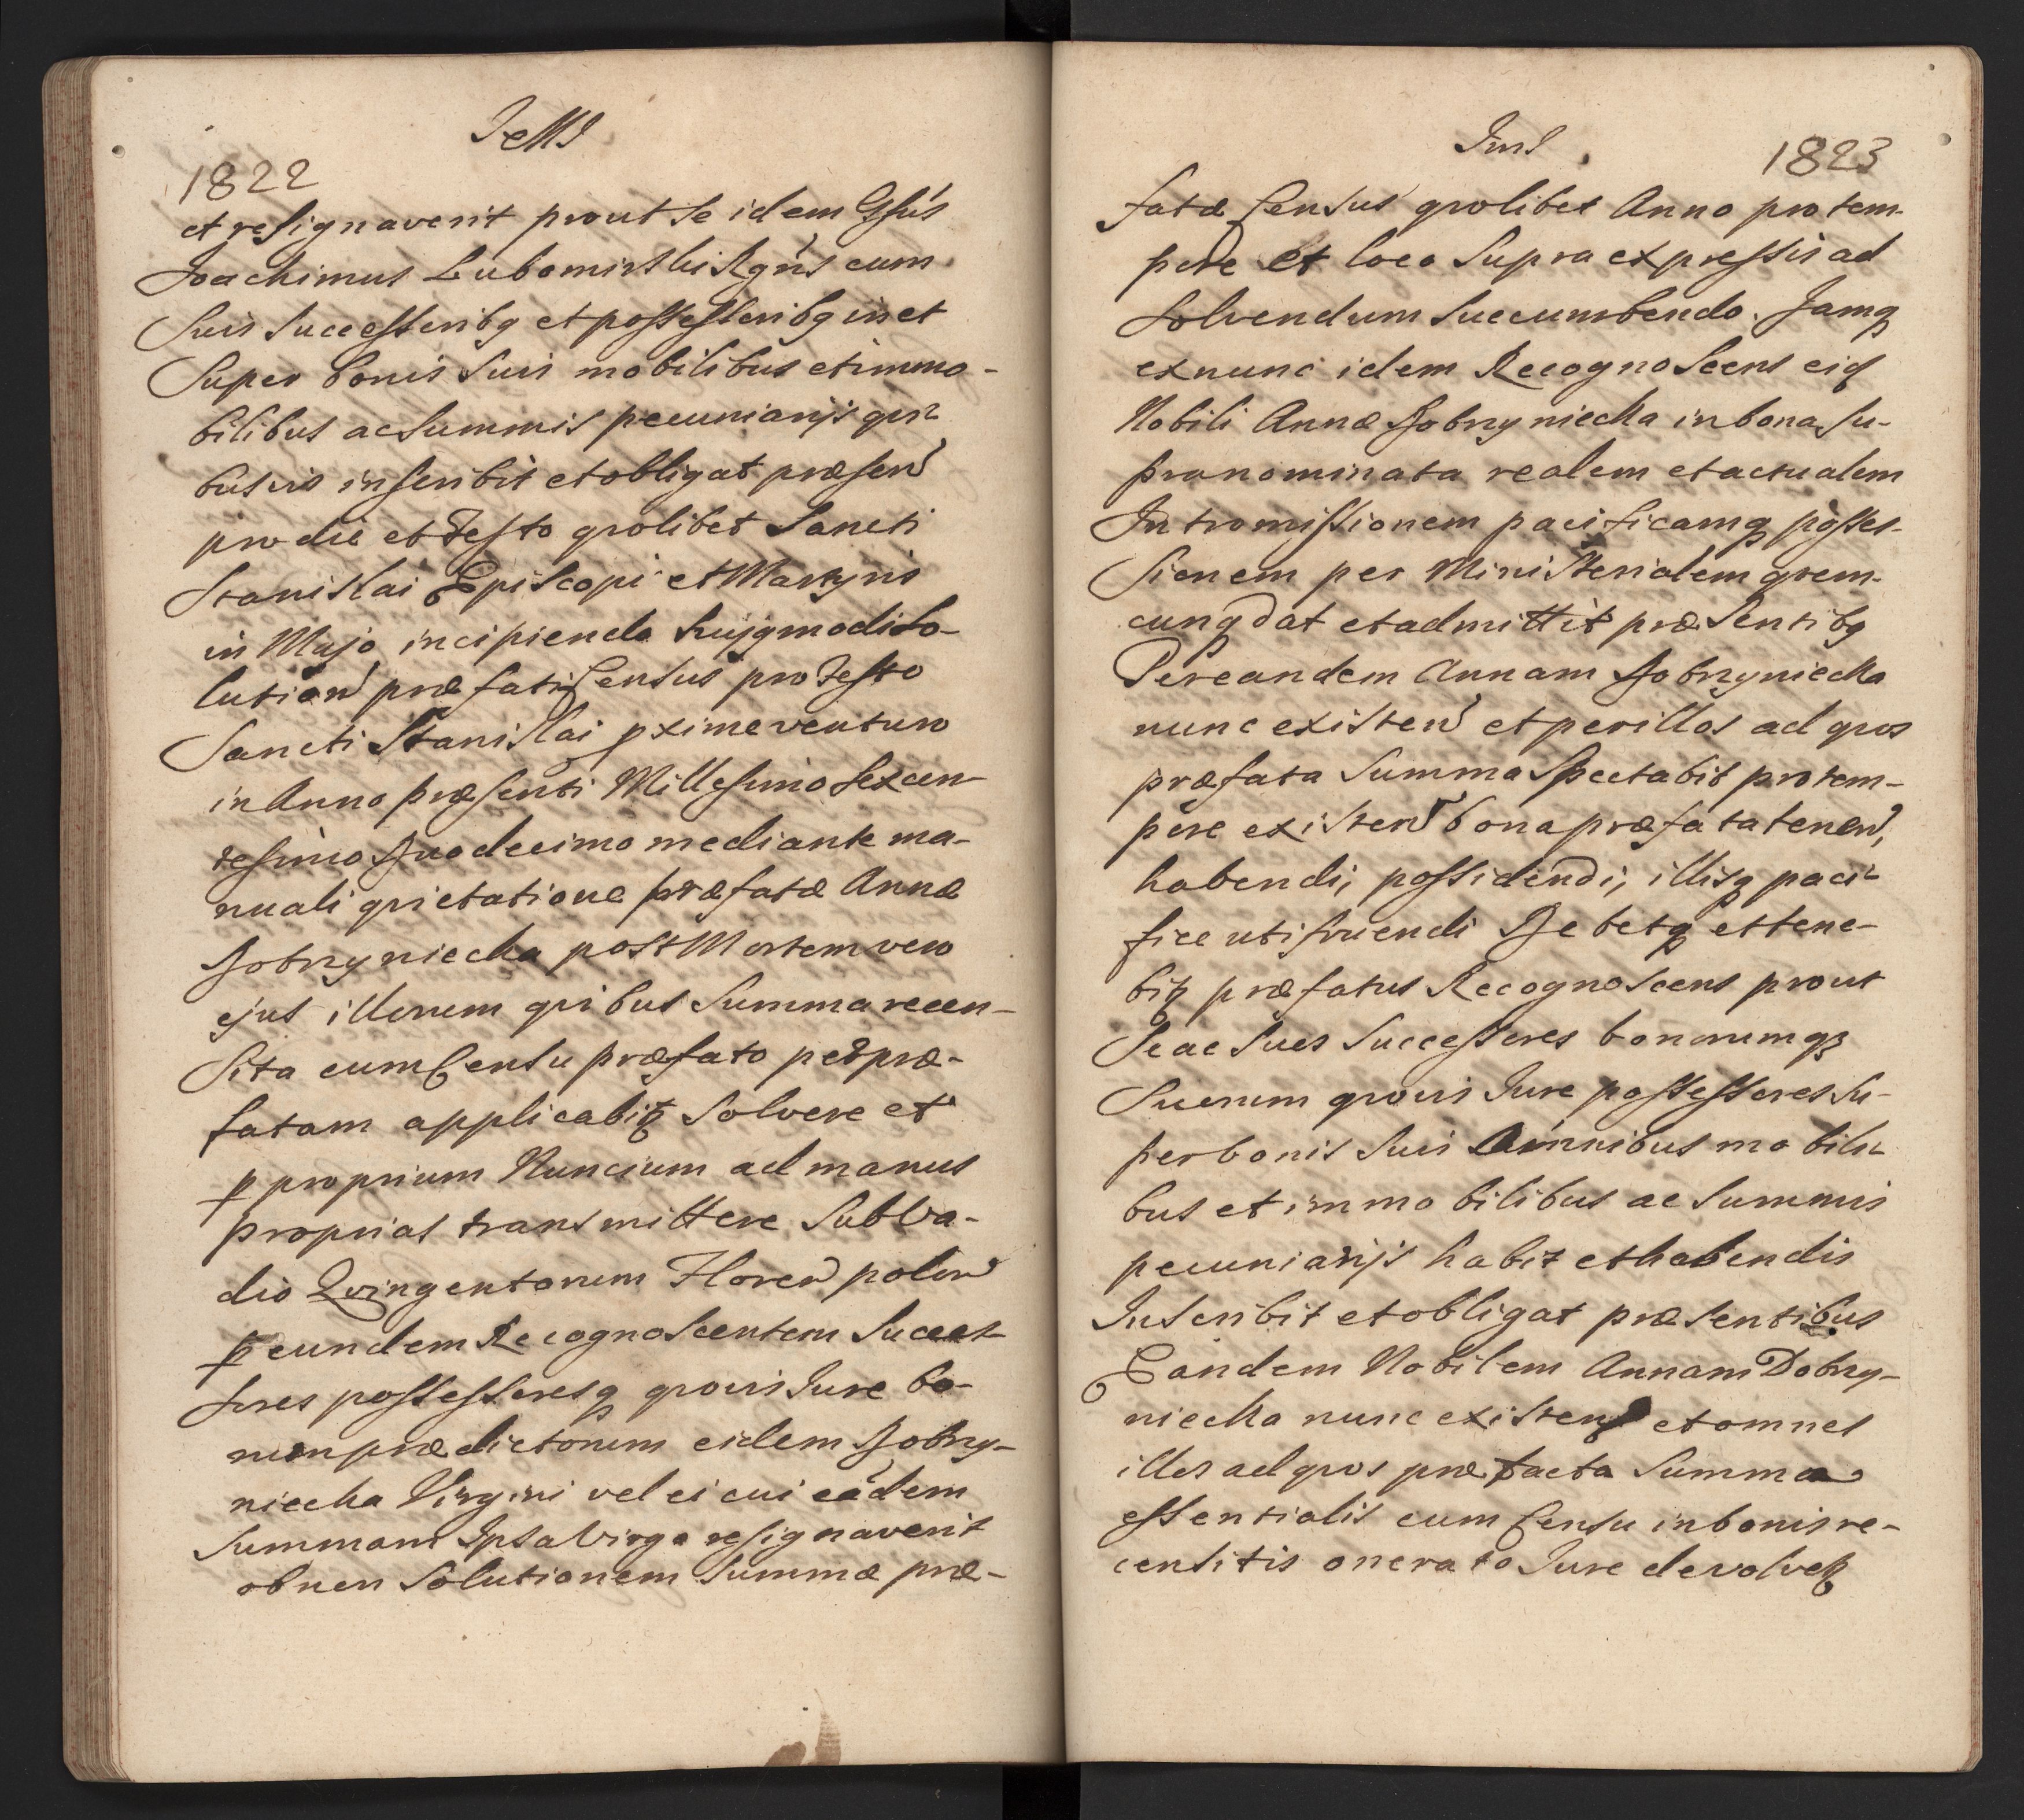 1822
et resignaverit prout se idem Gnsus
Joachimus Lubomirski Rgns cum
Suis Successoribq et possessoribq in et
Super bonis Suis mobilibus et immo-
bilibus ac Summis pecuniarijs qui-
busvis inscribit et obligat præsen
pro die et Festo qvolibet Sancti
Stanislai Episcopi et Martyris
in Majo incipiendo hujqmodi So-
lution præfati Census pro Festo
Sancti Stanislai pxime venturo
in Anno præsenti Millesimo Sexcen-
tesimo Duodecimo mediante ma-
nuali qvietatione præfatæ Annæ
Dobrzyniecka post Mortem vero
ejus illorum qvibus Summa recen-
Sita cum Censu præfato per præ-
fatam applicabitz Solvere et
p proprium Nuncium ad manus
proprias transmittere Sub Va-
dio Qvingentorum Floren polon
p eundem Recognoscentem Succes-
Sores possessoresq qvovis Jure bo-
num prædictorum eidem Dobrzy-
niecka Virgini vel ei cui eadem
Summam Ipsa Virgo resignaverit
ob non Solutionem Summæ præ-
1823
fatæ Census qvolibet Anno pro tem-
pere et loco Supra expressis ad
Solvendum Succumbendo. Jamq
ex nunc idem Recognoscens eid
Nobili Annæ Dobrzyniecka in bona Su-
pranominata realem et actualem
Intromissionem pacificamq posses-
Sionem per Ministerialem qvem-
cunq dat et admittit præsentibq
Per eandem Annam Dobrzyniecka
nunc existen et per illos ad qvos
præfata Summa Spectabit pro tem-
pere existen bona præfata tenen,
habendi, possidendi, illisq paci-
fice utifruendi Debetq et tene-
bitz præfatus Recognoscens prout
Se ac Suos Successores bonorumqz
Suorum qvovis Jure possessores Su-
per bonis Suis Omnibus mobili-
bus et immobilibus ac Summis
pecuniarijs habit et habendis
Inscribit et obligat præsentibus
Eandem Nobilem Annam Dobrzy-
niecka nunc existen et omnes
illos ad qvos præfacta Summa
essentialis cum Censu in bonis re-
censitis onerato Jure devolvetz